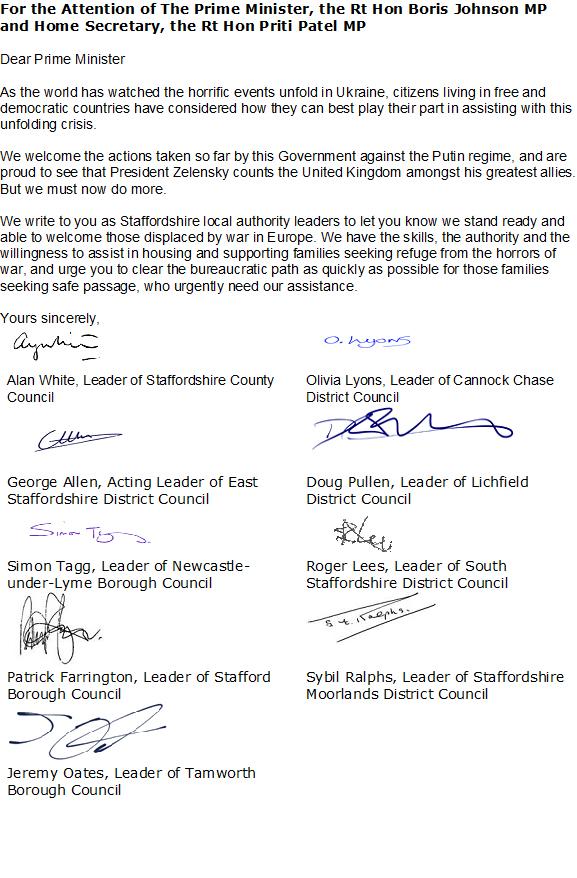 For the Attention of The Prime Minister, the Rt Hon Boris Johnson MP
and Home Secretary, the Rt Hon Priti Patel MP
Dear Prime Minister
As the world has watched the horrific events unfold in Ukraine, citizens living in free and
democratic countries have considered how they can best play their part in assisting with this
unfolding crisis.
We welcome the actions taken so far by this Government against the Putin regime, and are
proud to see that President Zelensky counts the United Kingdom amongst his greatest allies.
But we must now do more.
We write to you as Staffordshire local authority leaders to let you know we stand ready and
able to welcome those displaced by war in Europe. We have the skills, the authority and the
willingness to assist in housing and supporting families seeking refuge from the horrors of
war, and urge you to clear the bureaucratic path as quickly as possible for those families
seeking safe passage, who urgently need our assistance.
Yours sincerely,
O. Lyons
Alan White, Leader of Staffordshire County
Council
Olivia Lyons, Leader of Cannock Chase
District Council
George Allen, Acting Leader of East
Staffordshire District Council
Doug Pullen, Leader of Lichfield
District Council
Simon Tagg
Simon Tagg, Leader of Newcastle-
under-Lyme Borough Council
Roger Lees, Leader of South
Staffordshire District Council
S. E. Ralphs.
Patrick Farrington, Leader of Stafford
Borough Council
Sybil Ralphs, Leader of Staffordshire
Moorlands District Council
Jeremy Oates, Leader of Tamworth
Borough Council